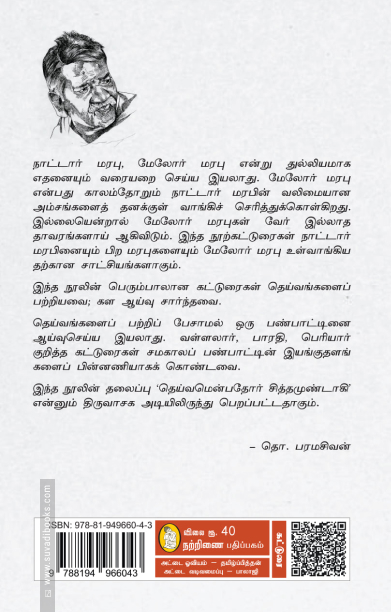 நாட்டார் மரபு, மேலோர் மரபு என்று துல்லியமாக
எதனையும் வரையறை செய்ய இயலாது. மேலோர் மரபு
என்பது காலம்தோறும் நாட்டார் மரபின் வலிமையான
அம்சங்களைத் தனக்குள் வாங்கிச் செரித்துக்கொள்கிறது.
இல்லையென்றால் மேலோர் மரபுகள் வேர் இல்லாத
தாவரங்களாய் ஆகிவிடும். இந்த நூற்கட்டுரைகள் நாட்டார்
மரபினையும் பிற மரபுகளையும் மேலோர் மரபு உள்வாங்கிய
தற்கான சாட்சியங்களாகும்.
இந்த நூலின் பெரும்பாலான கட்டுரைகள் தெய்வங்களைப்
பற்றியவை; கள ஆய்வு சார்ந்தவை.
தெய்வங்களைப் பற்றிப் பேசாமல் ஒரு பண்பாட்டினை
ஆய்வுசெய்ய இயலாது. வள்ளலார், பாரதி, பெரியார்
குறித்த கட்டுரைகள் சமகாலப் பண்பாட்டின் இயங்குதளங்
களைப் பின்னணியாகக் கொண்டவை.
இந்த நூலின் தலைப்பு ‘தெய்வமென்பதோர் சித்தமுண்டாகி’
என்னும் திருவாசக அடியிலிருந்து பெறப்பட்டதாகும்.
– தொ. பரமசிவன்
www.suvadibooks.com
ISBN: 978-81-949660-4-3
9 788194 966043
விலை ரூ. 40
நற்றிணை பதிப்பகம்
அட்டை ஓவியம் – தமிழ்ப்பித்தன்
அட்டை வடிவமைப்பு – பாலாஜி
கட்டுரை